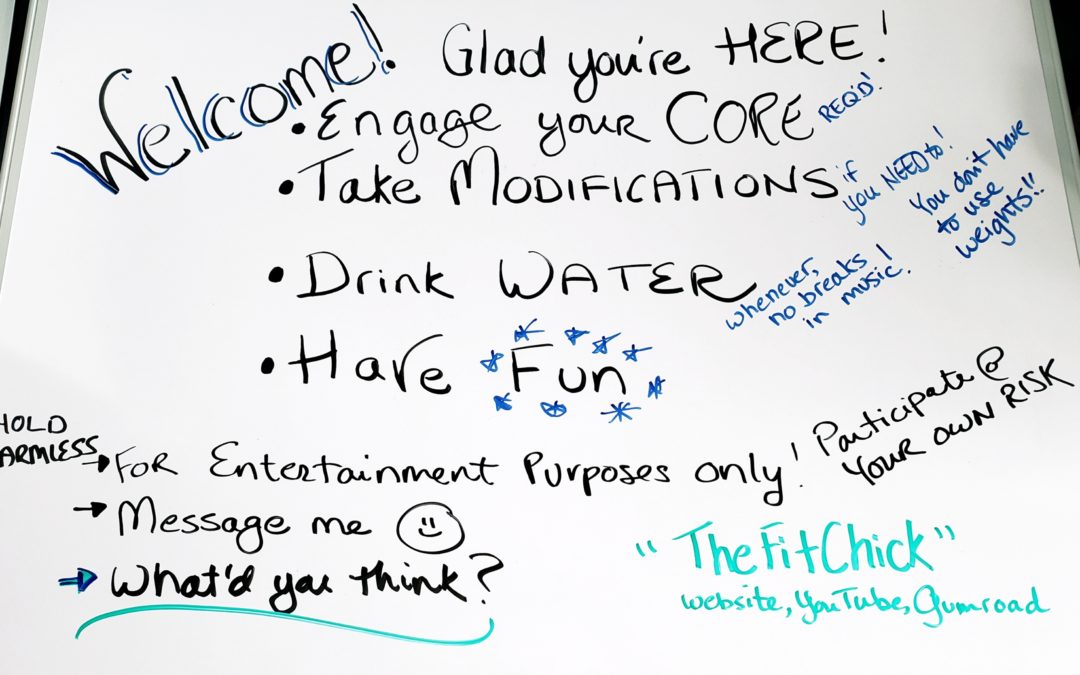 Welcome! Glad you're HERE!
• Engage your CORE REQ'D!
• Take MODIFICATIONS if
you NEED to!
You don't have
to use
weights!!
• Drink WATER
whenever,
no breaks!
in music.
• Have Fun
HOLD
ARMLESS → FOR Entertainment Purposes only! Participate @
YOUR OWN RISK
→ Message me
→ What'd you think?
"TheFitChick"
website, YouTube, Gumroad